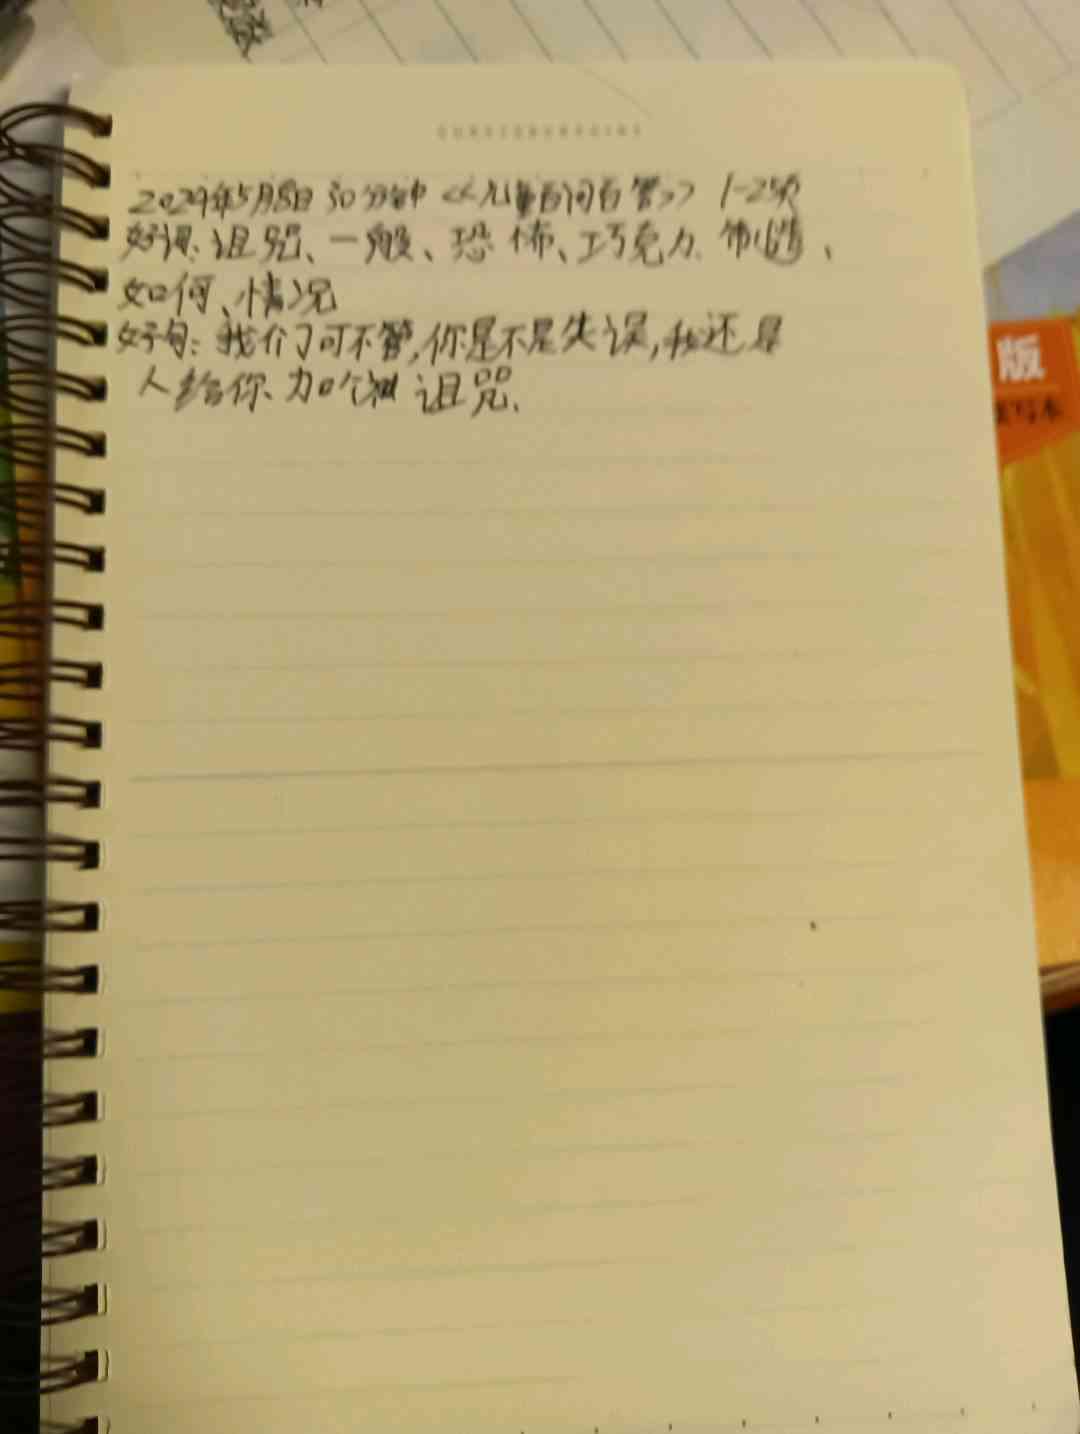 2024年5月8日 30分钟 《儿童百问百答》 1-25页
好词：诅咒、一般、恐怖、巧克力、制造、
如何、情况
好句：我们可不管,你是不是失误,我还是
人给你加个诅咒.
版
写本